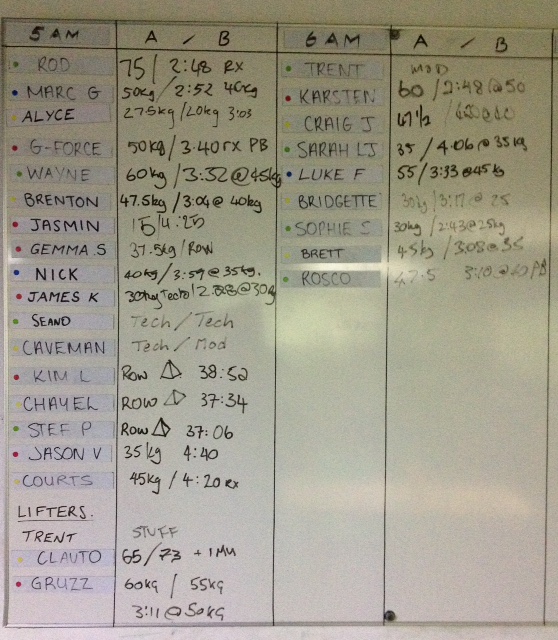 5 AM A / B
ROD 75 / 2:48 RX
MARC G 50kg / 2:52 40kg
ALYCE 27.5kg / 20kg 3:03
G-FORCE 50kg / 3:40 RX PB
WAYNE 60kg / 3:32 @ 45kg
BRENTON 47.5kg / 3:04 @ 40kg
JASMIN 15 / 4:25
GEMMA S 37.5kg / ROW
NICK 40kg / 3:59 @ 35kg.
JAMES K 30kg Tech / @ 30kg
SEANO Tech / Tech
CAVEMAN Tech / Mod
KIM L ROW 38:52
CHAYEL ROW 37:34
STEF P ROW 37:06
JASON V 35kg 4:40
COURTS 45kg / 4:20 RX
LIFTERS.
TRENT STUFF
CLAUTO 65/73 + 1MU
GRUZZ 60kg / 55kg
3:11 @ 50kg
6 AM A / B
TRENT MOD
KARSTEN 60 / 2:48 @ 50
CRAIG J
SARAH LJ 35 / 4:06 @ 35kg
LUKE F 55 / 3:33 @ 45kg
BRIDGETTE 30kg / 3:17 @ 25
SOPHIE S 30kg / 2:43 @ 25kg
BRETT 45kg / 3:08 @ 35
ROSCO 47.5 3:10 @ 40 PB